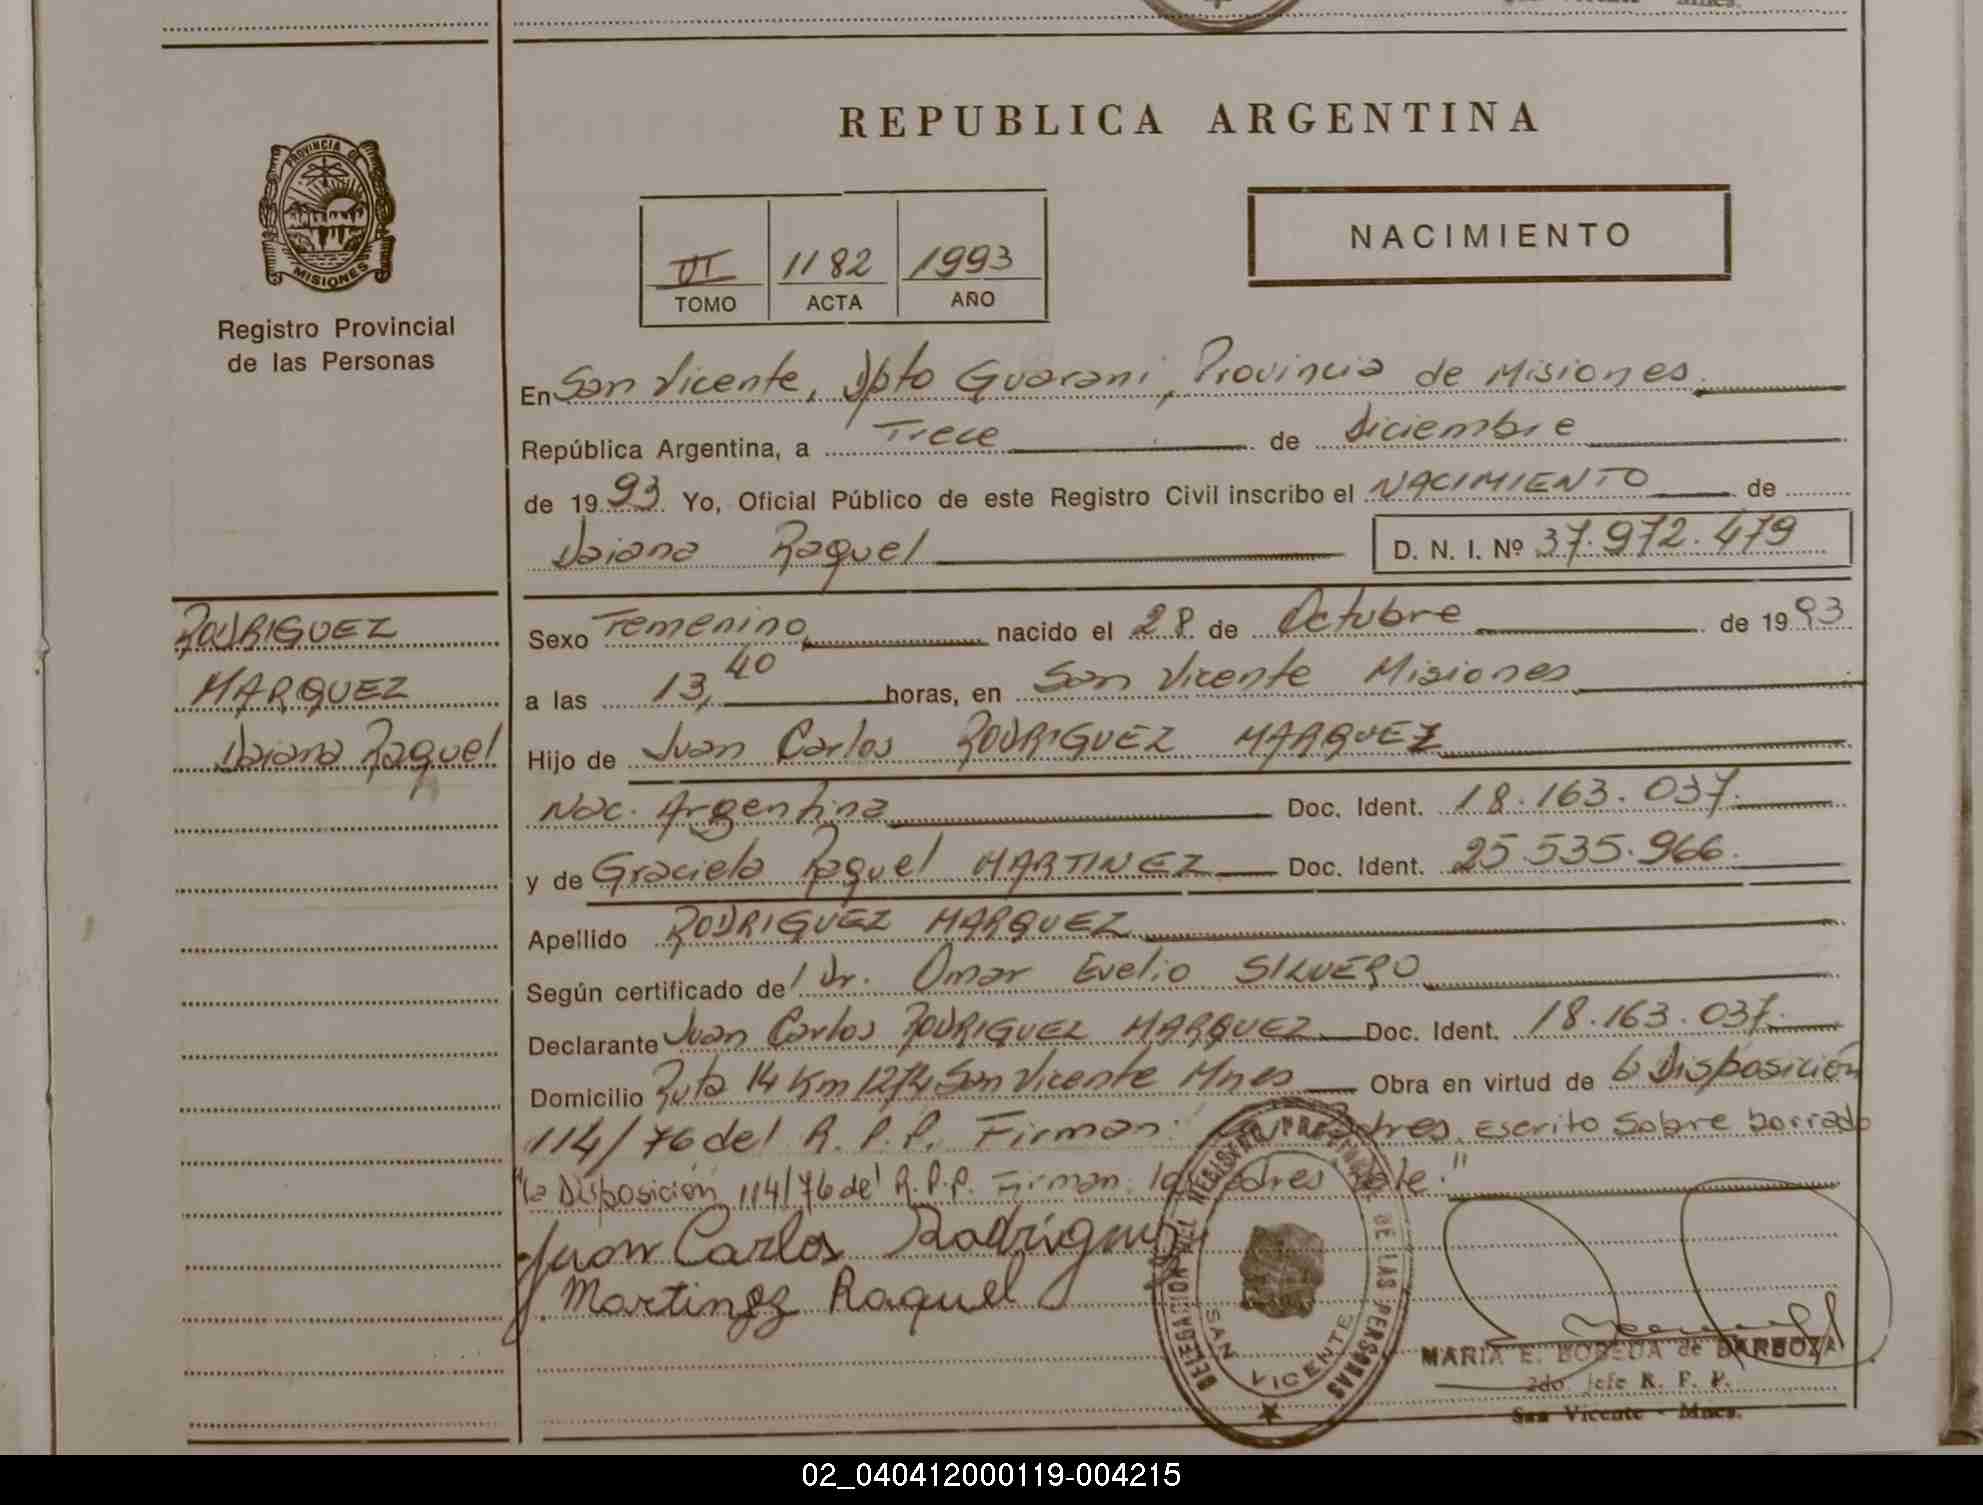 San Vicente Mnes.
REPUBLICA ARGENTINA
PROVINCIA DE
MISIONES
Registro Provincial
de las Personas
VI 1182 1993
TOMO ACTA AÑO
NACIMIENTO
En San Vicente, Dpto Guarani, Provincia de Misiones
República Argentina, a Trece de Diciembre
de 1993 Yo, Oficial Público de este Registro Civil inscribo el NACIMIENTO de
Daiana Raquel D. N. I. Nº 37.972.479
RODRIGUEZ
MARQUEZ
Daiana Raquel
Sexo Femenino nacido el 28 de Octubre de 1993
a las 13,40 horas, en San Vicente Misiones
Hijo de Juan Carlos RODRIGUEZ MARQUEZ
Nac. Argentina Doc. Ident. 18.163.037.
y de Graciela Raquel MARTINEZ Doc. Ident. 25.535.966.
Apellido RODRIGUEZ MARQUEZ
Según certificado del Dr. Omar Evelio SILVERO
Declarante Juan Carlos RODRIGUEZ MARQUEZ Doc. Ident. 18.163.037.
Domicilio Ruta 14 Km 1274 San Vicente Mnes Obra en virtud de la Disposición
114/76 del R. P. P. Firman: Padres. Escrito Sobre borrado
"la Disposición 114/76 del R.P.P. Firman: los Padres Vale."
Juan Carlos Rodríguez
Martinez Raquel
DELEGACION DEL REGISTRO PROVINCIAL DE LAS PERSONAS
SAN VICENTE
MARIA E. BOBEDA de BARBOZA
2do. Jefe R. P. P.
San Vicente - Mnes.
02_040412000119-004215